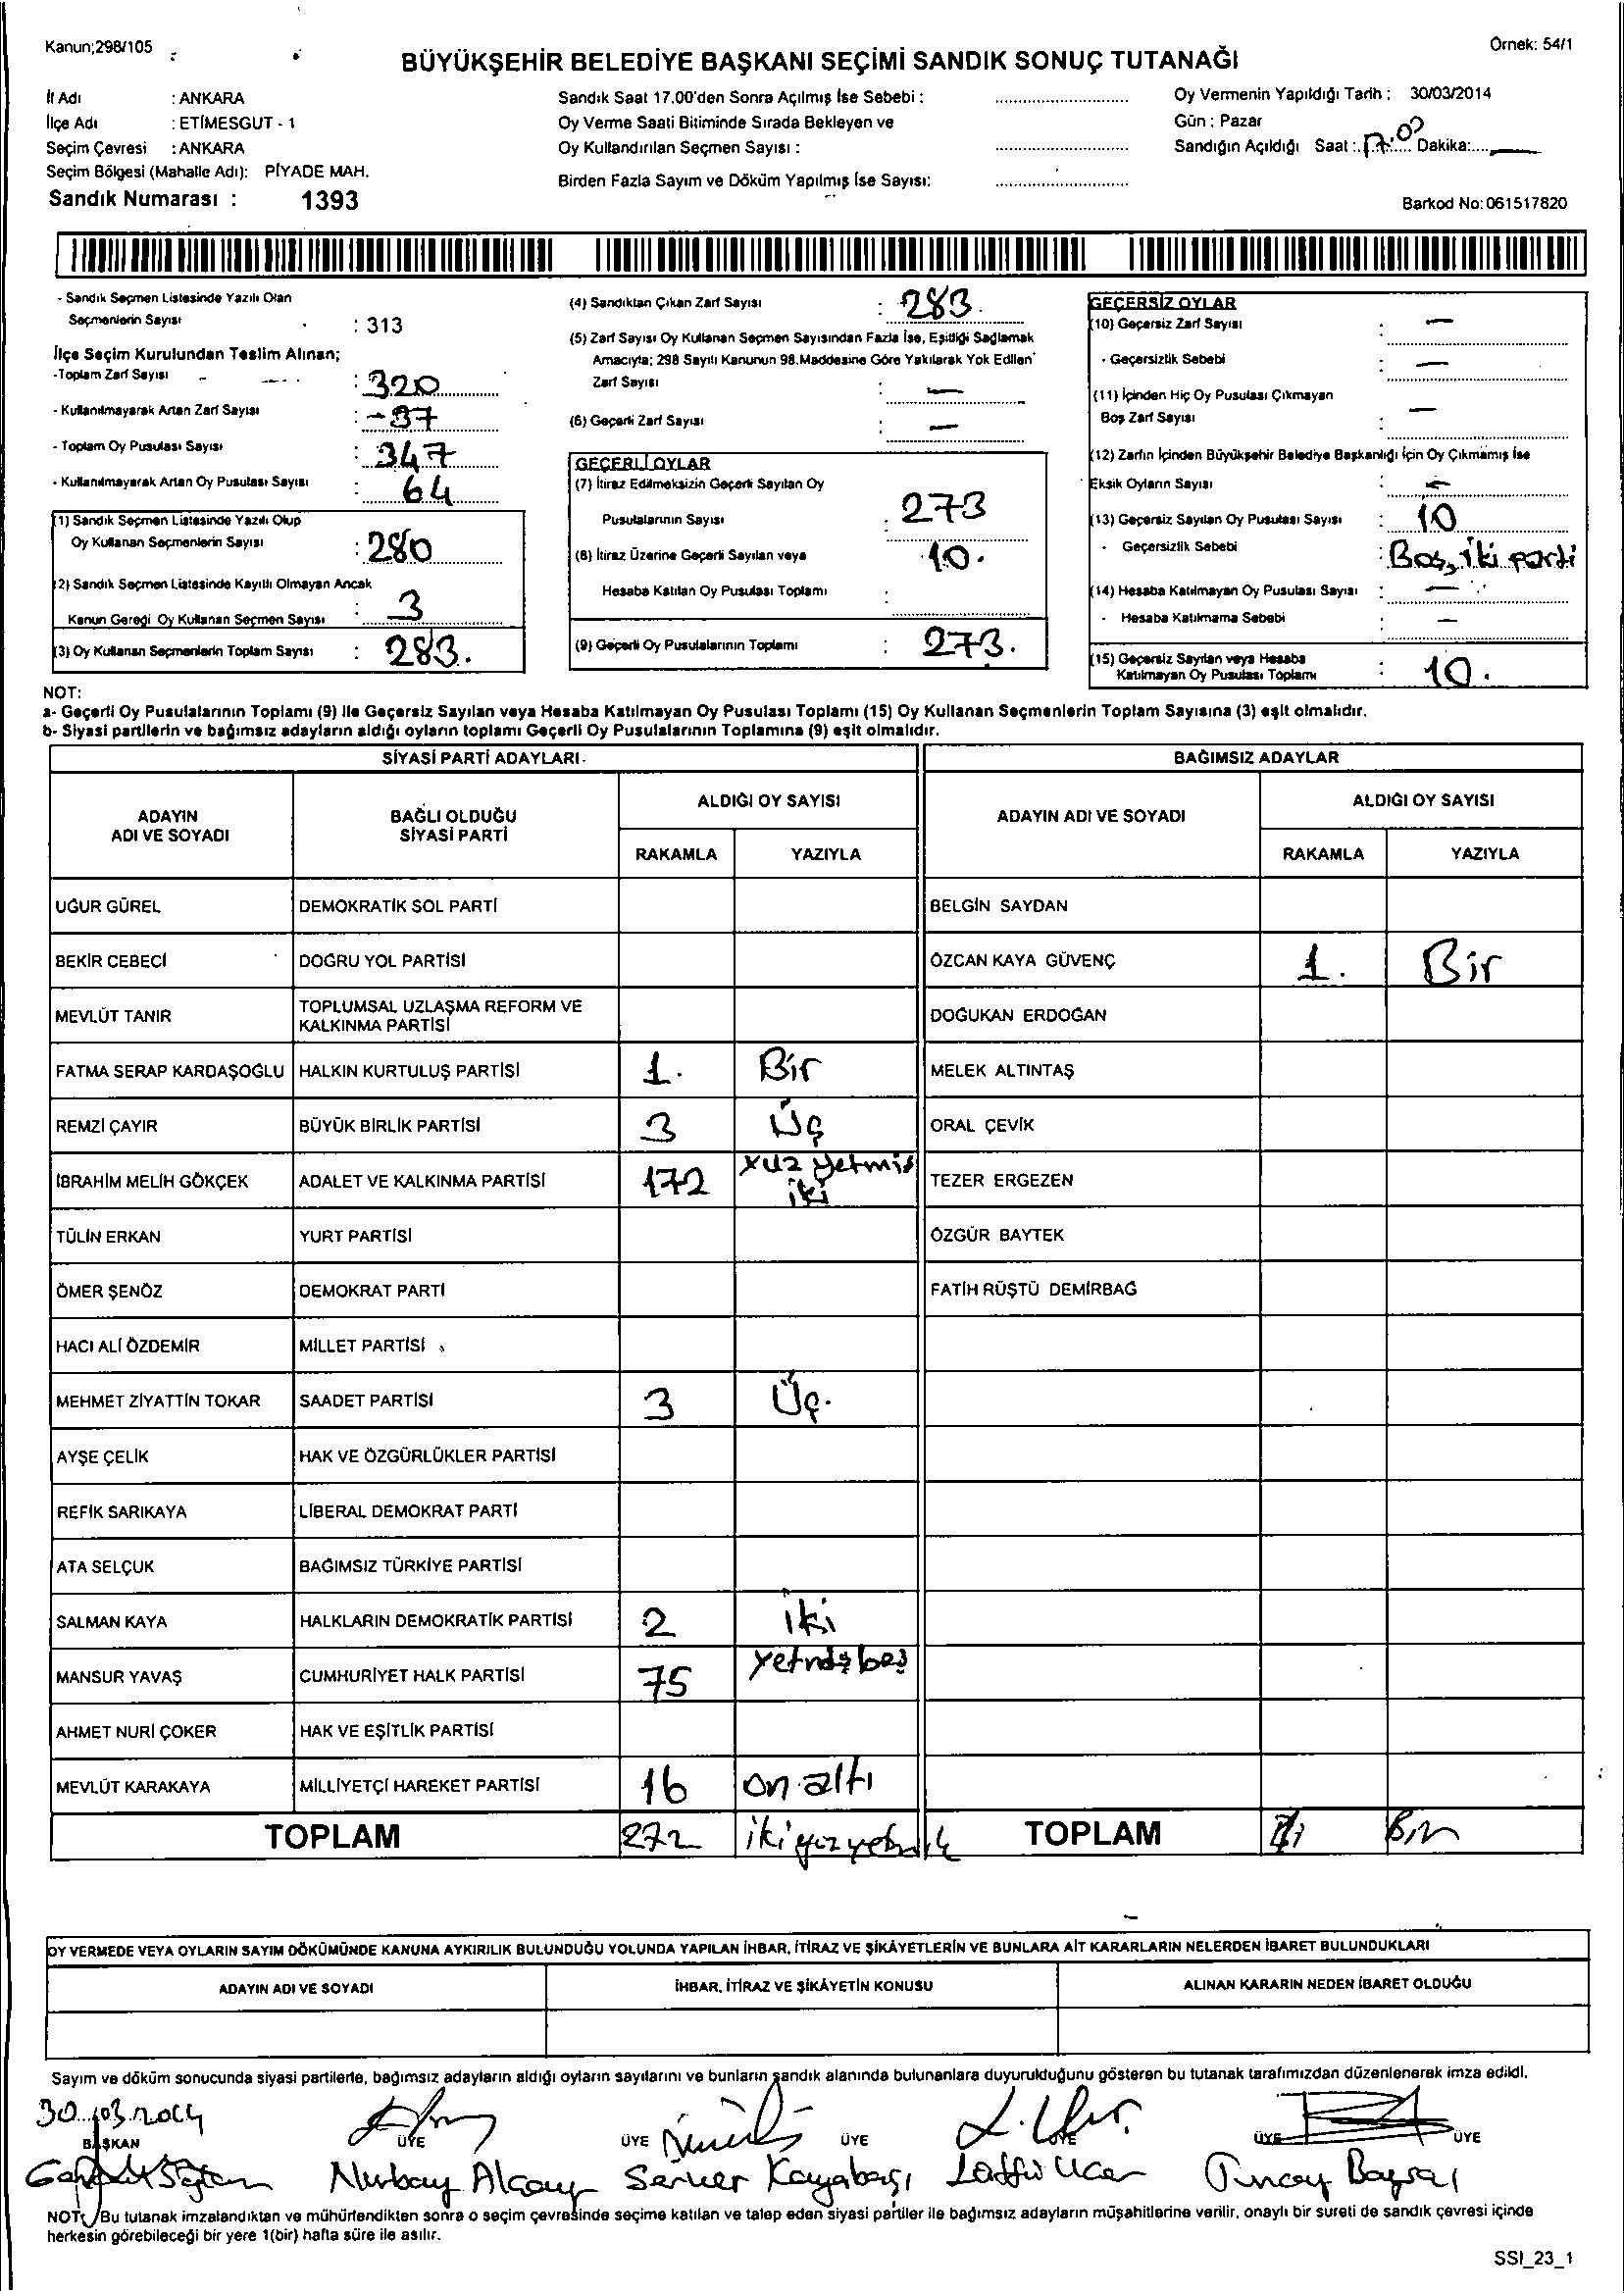 Kanun;298/105
Örnek: 54/1
BÜYÜKŞEHİR BELEDİYE BAŞKANI SEÇİMİ SANDIK SONUÇ TUTANAĞI
İl Adı : ANKARA
İlçe Adı : ETİMESGUT - 1
Seçim Çevresi : ANKARA
Seçim Bölgesi (Mahalle Adı): PİYADE MAH.
Sandık Numarası : 1393
Sandık Saat 17.00'den Sonra Açılmış İse Sebebi :
Oy Verme Saati Bitiminde Sırada Bekleyen ve
Oy Kullandırılan Seçmen Sayısı :
Birden Fazla Sayım ve Döküm Yapılmış İse Sayısı:
Oy Vermenin Yapıldığı Tarih : 30/03/2014
Gün : Pazar
Sandığın Açıldığı Saat : 17:00 Dakika:
Barkod No: 061517820
- Sandık Seçmen Listesinde Yazılı Olan
Seçmenlerin Sayısı : 313
İlçe Seçim Kurulundan Teslim Alınan;
-Toplam Zarf Sayısı : 320
- Kullanılmayarak Artan Zarf Sayısı : -37
- Toplam Oy Pusulası Sayısı : 347
- Kullanılmayarak Artan Oy Pusulası Sayısı : 64
(1) Sandık Seçmen Listesinde Yazılı Olup
Oy Kullanan Seçmenlerin Sayısı : 280
(2) Sandık Seçmen Listesinde Kayıtlı Olmayan Ancak
Kanun Gereği Oy Kullanan Seçmen Sayısı : 3
(3) Oy Kullanan Seçmenlerin Toplam Sayısı : 283.
(4) Sandıktan Çıkan Zarf Sayısı : 283.
(5) Zarf Sayısı Oy Kullanan Seçmen Sayısından Fazla İse, Eşitliği Sağlamak
Amacıyla; 298 Sayılı Kanunun 98.Maddesine Göre Yakılarak Yok Edilen
Zarf Sayısı : —
(6) Geçerli Zarf Sayısı : —
GEÇERLİ OYLAR
(7) İtiraz Edilmeksizin Geçerli Sayılan Oy
Pusulalarının Sayısı : 273
(8) İtiraz Üzerine Geçerli Sayılan veya
Hesaba Katılan Oy Pusulası Toplamı : 10.
(9) Geçerli Oy Pusulalarının Toplamı : 273.
GEÇERSİZ OYLAR
(10) Geçersiz Zarf Sayısı : —
- Geçersizlik Sebebi : —
(11) İçinden Hiç Oy Pusulası Çıkmayan
Boş Zarf Sayısı : —
(12) Zarfın İçinden Büyükşehir Belediye Başkanlığı İçin Oy Çıkmamış İse
Eksik Oyların Sayısı : —
(13) Geçersiz Sayılan Oy Pusulası Sayısı : 10
- Geçersizlik Sebebi : Boş, iki parti
(14) Hesaba Katılmayan Oy Pusulası Sayısı : —
- Hesaba Katılmama Sebebi : —
(15) Geçersiz Sayılan veya Hesaba
Katılmayan Oy Pusulası Toplamı : 10.
NOT:
a- Geçerli Oy Pusulalarının Toplamı (9) ile Geçersiz Sayılan veya Hesaba Katılmayan Oy Pusulası Toplamı (15) Oy Kullanan Seçmenlerin Toplam Sayısına (3) eşit olmalıdır.
b- Siyasi partilerin ve bağımsız adayların aldığı oyların toplamı Geçerli Oy Pusulalarının Toplamına (9) eşit olmalıdır.
SİYASİ PARTİ ADAYLARI BAĞIMSIZ ADAYLAR
ADAYIN ADI VE SOYADI BAĞLI OLDUĞU SİYASİ PARTİ ALDIĞI OY SAYISI ADAYIN ADI VE SOYADI ALDIĞI OY SAYISI
RAKAMLA YAZIYLA RAKAMLA YAZIYLA
UĞUR GÜREL DEMOKRATİK SOL PARTİ BELGİN SAYDAN
BEKİR CEBECİ DOĞRU YOL PARTİSİ ÖZCAN KAYA GÜVENÇ 1. Bir
MEVLÜT TANIR TOPLUMSAL UZLAŞMA REFORM VE KALKINMA PARTİSİ DOĞUKAN ERDOĞAN
FATMA SERAP KARDAŞOĞLU HALKIN KURTULUŞ PARTİSİ 1. Bir MELEK ALTINTAŞ
REMZİ ÇAYIR BÜYÜK BİRLİK PARTİSİ 3 Üç ORAL ÇEVİK
İBRAHİM MELİH GÖKÇEK ADALET VE KALKINMA PARTİSİ 172 Yüz yetmiş iki TEZER ERGEZEN
TÜLİN ERKAN YURT PARTİSİ ÖZGÜR BAYTEK
ÖMER ŞENÖZ DEMOKRAT PARTİ FATİH RÜŞTÜ DEMİRBAĞ
HACI ALİ ÖZDEMİR MİLLET PARTİSİ
MEHMET ZİYATTİN TOKAR SAADET PARTİSİ 3 Üç.
AYŞE ÇELİK HAK VE ÖZGÜRLÜKLER PARTİSİ
REFİK SARIKAYA LİBERAL DEMOKRAT PARTİ
ATA SELÇUK BAĞIMSIZ TÜRKİYE PARTİSİ
SALMAN KAYA HALKLARIN DEMOKRATİK PARTİSİ 2 iki
MANSUR YAVAŞ CUMHURİYET HALK PARTİSİ 75 Yetmiş beş
AHMET NURİ ÇOKER HAK VE EŞİTLİK PARTİSİ
MEVLÜT KARAKAYA MİLLİYETÇİ HAREKET PARTİSİ 16 on altı
TOPLAM 272 TOPLAM Bir
OY VERMEDE VEYA OYLARIN SAYIM DÖKÜMÜNDE KANUNA AYKIRILIK BULUNDUĞU YOLUNDA YAPILAN İHBAR, İTİRAZ VE ŞİKÂYETLERİN VE BUNLARA AİT KARARLARIN NELERDEN İBARET BULUNDUKLARI
ADAYIN ADI VE SOYADI İHBAR, İTİRAZ VE ŞİKÂYETİN KONUSU ALINAN KARARIN NEDEN İBARET OLDUĞU
Sayım ve döküm sonucunda siyasi partilerle, bağımsız adayların aldığı oyların sayılarını ve bunların sandık alanında bulunanlara duyurulduğunu gösteren bu tutanak tarafımızdan düzenlenerek imza edildi.
30.03.2014
BAŞKAN ÜYE ÜYE ÜYE ÜYE ÜYE ÜYE
Nurbay Alçay Server Kayabaşı Lütfü Ucar Tuncay Baysal
NOT: Bu tutanak imzalandıktan ve mühürlendikten sonra o seçim çevresinde seçime katılan ve talep eden siyasi partiler ile bağımsız adayların müşahitlerine verilir, onaylı bir sureti de sandık çevresi içinde
herkesin görebileceği bir yere 1(bir) hafta süre ile asılır.
SSI_23_1